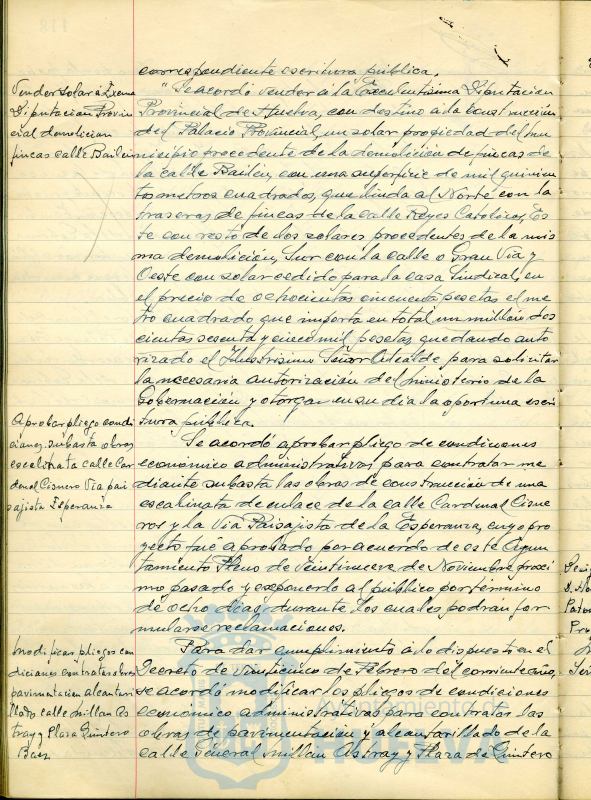 correspondiente escritura pública.
Vender solar á Excma
Diputacion Provin
cial demolicion
fincas calle Bailen
"Se acordó vender á la Excelentísima Diputacion
Provincial de Huelva, con destino á la Construcción
del Palacio Provincial, un solar propiedad del mu
nicipio procedente de la demolición de fincas de
la calle Bailen, con una superficie de mil quinien
tos metros cuadrados, que linda al Norte con la
traseras de fincas de la calle Reyes Catolicos, Es
te con resto de los solares procedentes de la mis
ma demolición, Sur con la calle o Gran Via y
Oeste con solar cedido para la casa Sindical, en
el precio de ochocientas cincuenta pesetas el me
tro cuadrado que importa en total un millón dos
cientas setenta y cinco mil pesetas, quedando auto
rizado el Ilustrisimo Señor Alcalde para solicitar
la necesaria autorización del Ministerio de la
Gobernación y otorgar en su dia la oportuna escri
tura pública.
Aprobar pliego condi
ciones subasta obras
escalinata calle Car
denal Cisnero Via pai
sajista Esperanza
Se acordó aprobar pliego de condiciones
económico administrativas para contratar me
diante subasta las obras de construcción de una
escalinata de enlace de la calle Cardenal Cisne
ros y la Via Paisajista de la Esperanza, cuyo pro
yecto fué aprobado por acuerdo de este Ayun
tamiento Pleno de Veintinueve de Noviembre proxi
mo pasado y exponerlo al público por término
de ocho dias, durante los cuales podran for
mularse reclamaciones.
Modificar pliegos con
diciones contratar obras
pavimentacion alcantari
llado calle Millan As
tray y Plaza Quintero
Baez
Para dar cumplimiento á lo dispuesto en el
Decreto de Veinticinco de Febrero del corriente año,
se acordó modificar los pliegos de condiciones
economico administrativas para contratar las
obras de pavimentación y alcantarillado de la
calle General Millan Astray y Plaza de Quintero
Ayuntamiento de
HUELVA